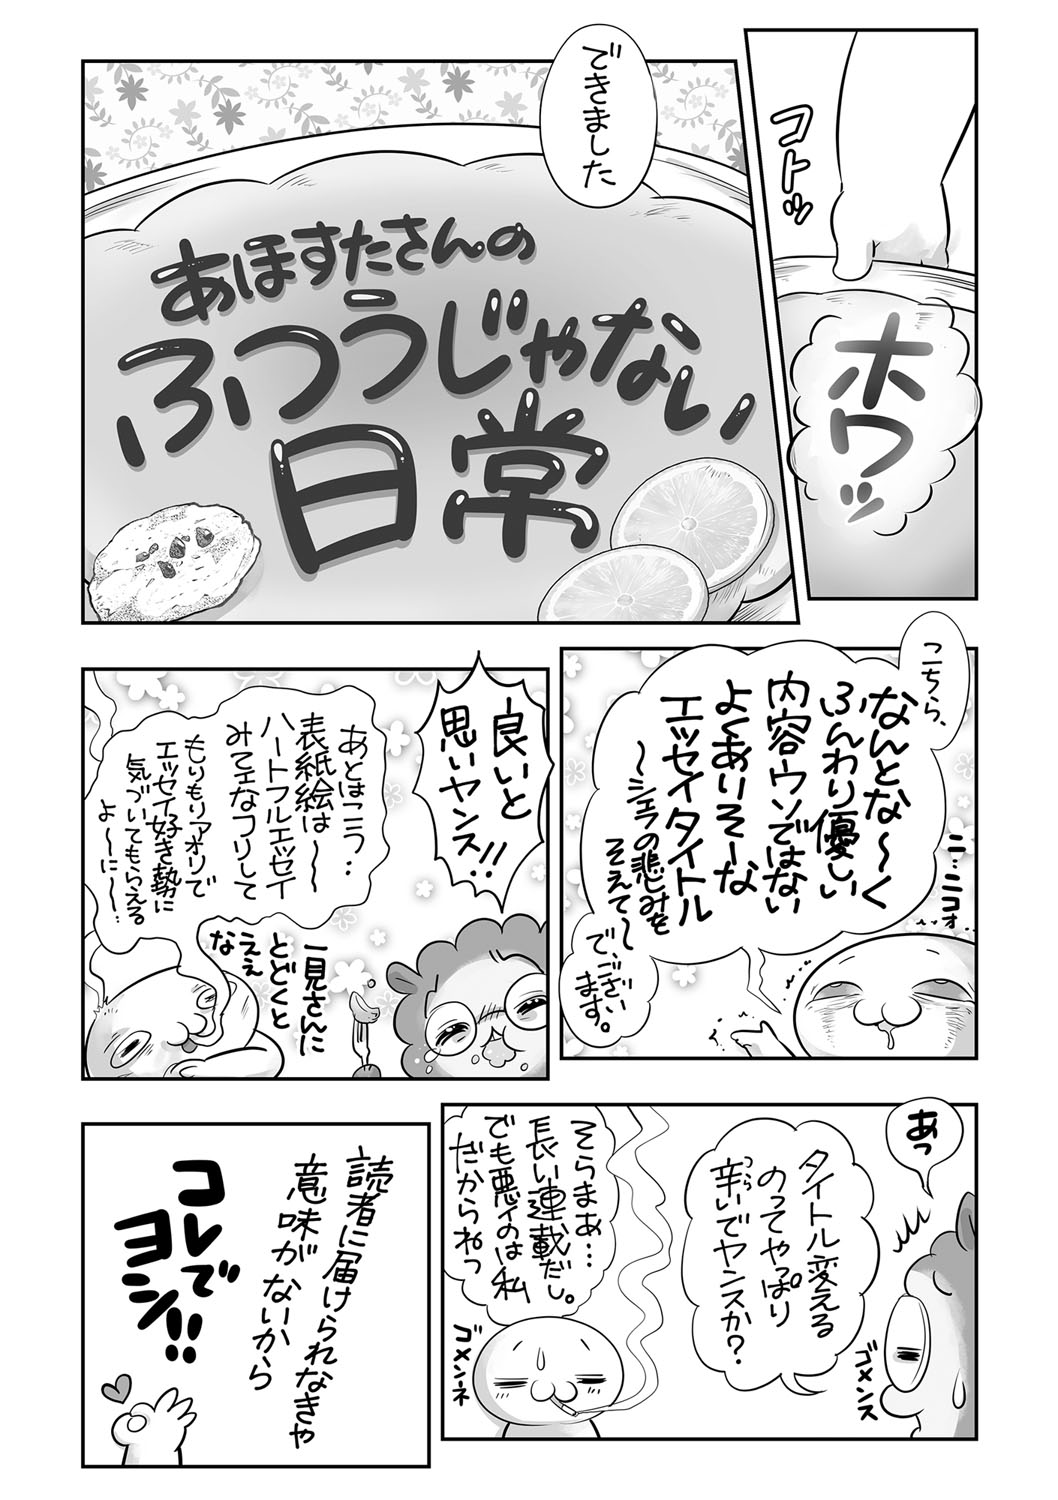 コトッ
ホワッ
できました
あほすたさんの
ふつうじゃない
日常
こちら、
なんとな～く
ふんわり優しい
内容ウソではない
よくありそーな
エッセイタイトル
～シェラの悲しみを
そえて～
で、ござい
ます。
ニ…ニコォ
良いと
思いヤンス!!
あとはこう…
表紙絵は～
ハートフルエッセイ
みてェなフリして
もりもりアオリで
エッセイ好き勢に
気づいてもらえる
よ～に～…
一見さんに
とどくと
ええ
なぁ
あっ
タイトル変える
のってやっぱり
辛いでヤンスか?
つら
ゴメンス
そらまあ…
長い連載だし。
でも悪ィのは私
だからねっ
ゴメンネ
読者に届けられなきゃ
意味がないから
コレで
ヨシ!!